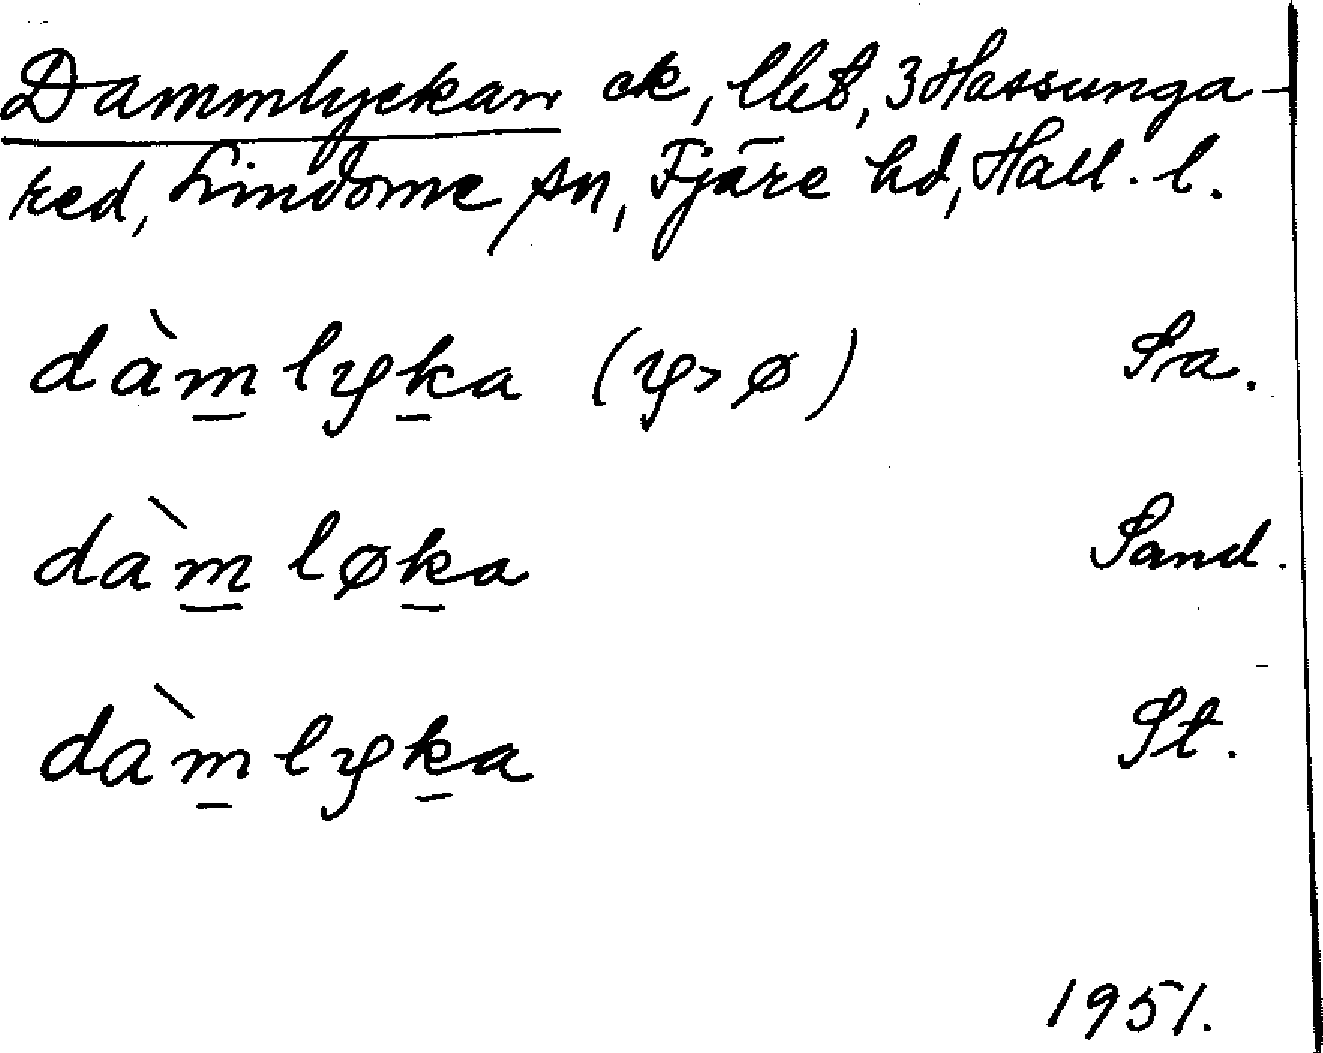 Dammlyckan åk, Ulet, 3 Hassunga-
red, Lindome sn, Fjäre hd, Hall. l.
dàmlyka (y>ø) Sa.
dàmløka Sand.
dàmlyka St.
1951.